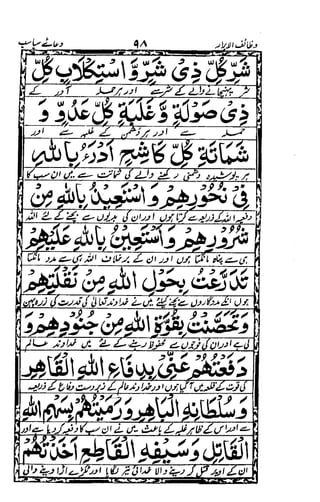 وظائف الابرار ۹۸ دعائے سباسب
شَرِّ كُلِّ ذِيْ شَرٍّ وَّ اسْتِكْلَابِ كُلِّ
شر پہنچانے والے کے شر سے اور ہر حملہ آور کے
ذِيْ صَوْلَةٍ وَّ غَلَبَةِ كُلِّ عَدُوٍّ وَ
حملہ سے اور ہر دشمن کے غلبہ سے اور
شَمَاتَةِ كُلِّ كَاشِحٍ اَدْرَءُ بِاللهِ
ہر پوشیدہ دشمنی رکھنے والے کی شماتت سے میں ان سب کا
فِيْ نُحُوْرِهِمْ وَ اسْتَعِيْذُ بِاللهِ مِنْ
دفعیہ اللہ کے ذریعہ سے کرتا ہوں اور ان کی بدیوں سے بچنے کے لئے اللہ
شُرُوْرِهِمْ وَ اسْتَعِيْنُ بِاللهِ عَلَيْهِمْ
ہی سے پناہ مانگتا ہوں اور ان کے برخلاف اللہ ہی سے مدد مانگتا
تَدَرَّعْتُ بِحَوْلِ اللهِ مِنْ نَقْلَتِهِمْ
ہوں انکے مددگاروں سے بچنے کیلئے میں نے خداوند تعالیٰ کی قدرت کی زرہ پہن
وَ تَحَصَّنْتُ بِقُوَّةِ اللهِ مِنْ جُنُوْدِهِمْ وَ
لی ہے اور ان کی فوجوں سے محفوظ رہنے کے لئے میں نے خداوند عالم
دَفَعْتُهُمْ عَنِّيْ بِدِفَاعِ اللهِ الْقَاهِرِ
کی قوت کے قلعہ میں آگیا ہوں اور خداوند عالم کے زبردست دفاع کے ذریعہ
وَ سُلْطَانِهِ الْبَاهِرِ وَ رَمَيْتُهُمْ بِسَهْمِ اللهِ
اور اس کے ظاہر غلبہ کے باعث میں نے ان سب کو دفع کر دیا ہے اور
الْقَاتِلِ وَ سَيْفِهِ الْقَاطِعِ اَخَذْتُهُمْ
ان کے اوپر قتل کر دینے والا خدائی تیر لگایا اور ٹکڑے اڑا دینے والی